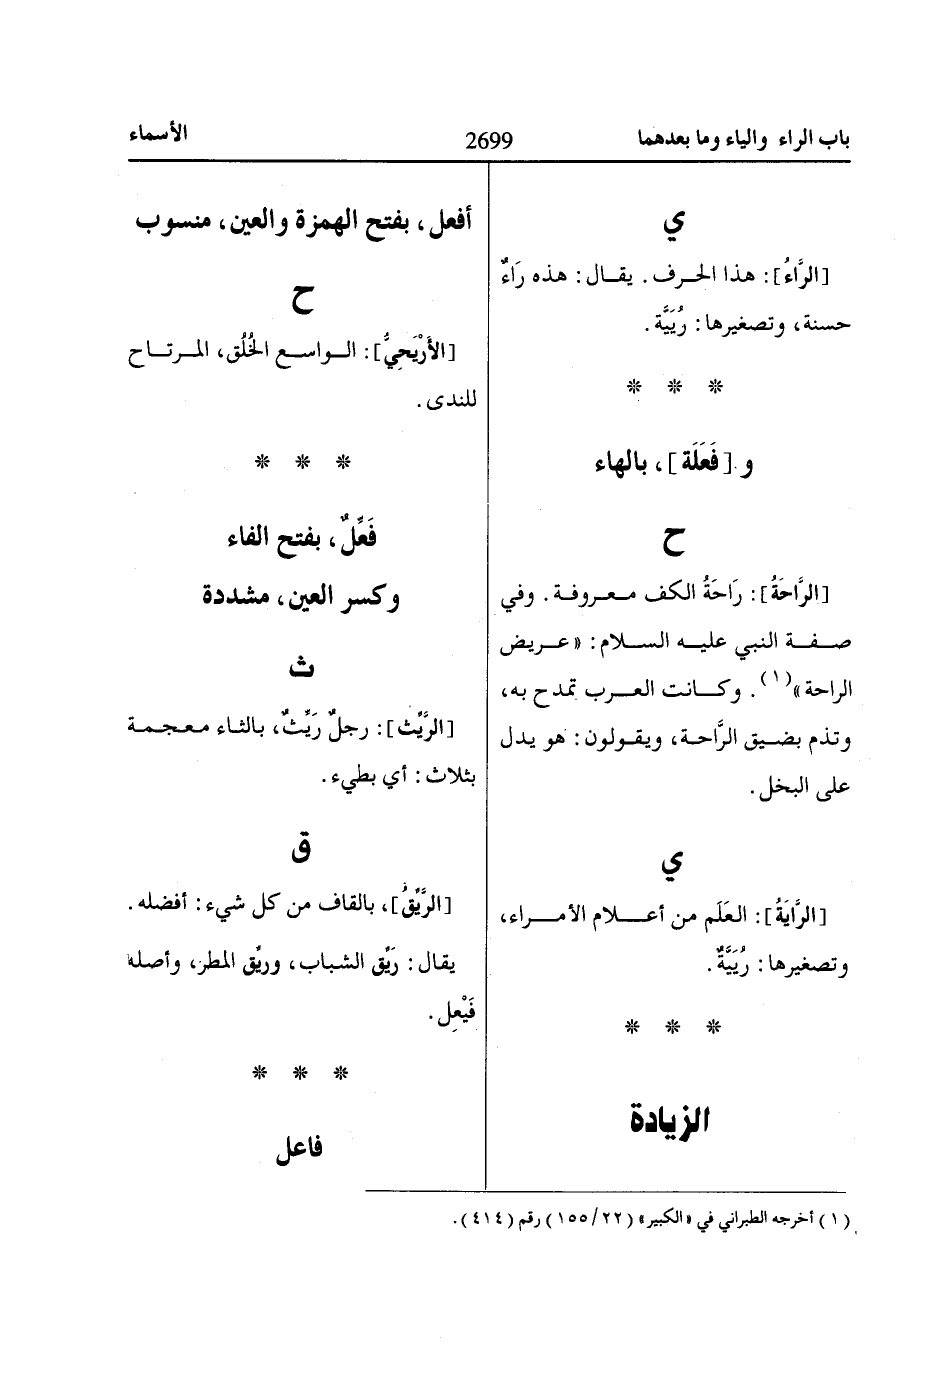 باب الراء والياء وما بعدهما 2699 الأسماء
ي
[الرَّاءُ]: هذا الحرف. يقال: هذه رَاءٌ
حسنة، وتصغيرها: رُيَيَّة.
* * *
و [فَعَلَة]، بالهاء
ح
[الرَّاحَةُ]: رَاحَةُ الكف معروفة. وفي
صفة النبي عليه السلام: «عريض
الراحة»(١). وكانت العرب تمدح به،
وتذم بضيق الرَّاحة، ويقولون: هو يدل
على البخل.
ي
[الرَّايَةُ]: العَلَم من أعلام الأمراء،
وتصغيرها: رُيَيَّةٌ.
* * *
الزيادة
أفعل، بفتح الهمزة والعين، منسوب
ح
[الأرْيَحِيُّ]: الواسع الخُلُق، المرتاح
للندى.
* * *
فَعِّلٌ، بفتح الفاء
وكسر العين، مشددة
ث
[الرَّيِّث]: رجلٌ رَيِّثٌ، بالثاء معجمة
بثلاث: أي بطيء.
ق
[الرَّيِّقُ]، بالقاف من كل شيء: أفضله.
يقال: رَيِّق الشباب، وريِّق المطر، وأصله
فَيْعِل.
* * *
فاعل
(١) أخرجه الطبراني في «الكبير» (٢٢/١٥٥) رقم (٤١٤).